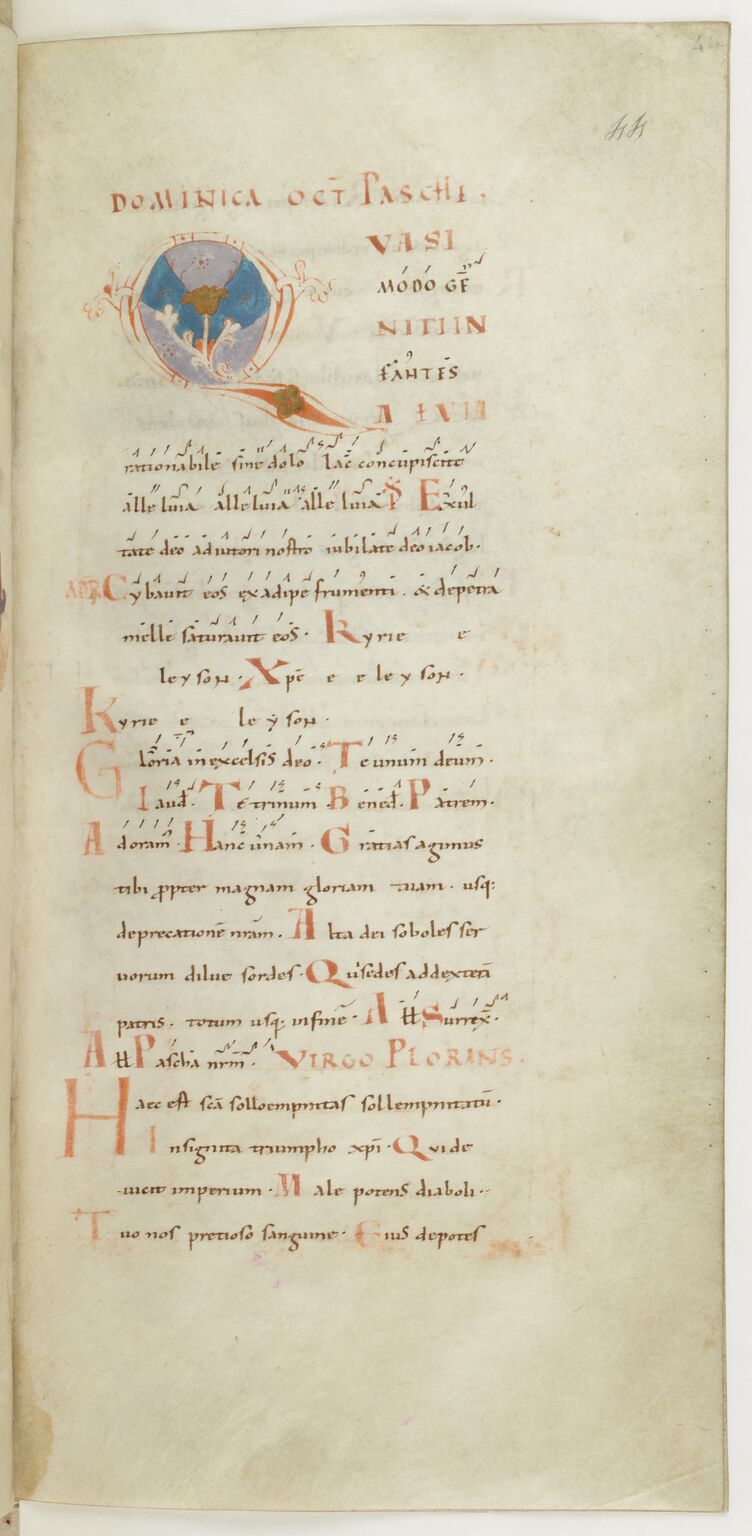 44
DOMINICA OCT̄ PASCHE.
QVASI
MODO GE
NITI IN
FANTES
A EVIA
rationabile sine dolo lac̄ concupiscite
alleluia alleluia alleluia Ps Exul
tate deo adiutori nostro iubilate deo iacob.
Cybauit eos ex adipe frumenti. & de petra
melle saturauit eos. Kyrie e
leyson. Xpē e e leyson.
Kyrie e leyson.
Gloria in excelsis deo. Te unum deum.
Laud. Te trinum Bened. Patrem.
Adoram̄. Hanc unam. Gratias agimus
tibi propter magnam gloriam tuam. usq:
deprecationē nrām. Alta dei soboles ser
uorum dilue sordes. Qui sedes ad dexterā
patris. totum usq; in finē. All Surrex̄.
All Pascha nrm̄. VIRGO PLORANS.
Haec est scā solloempnitas sollempnitatū.
Insignita triumpho xpī. Qui de
uicit imperium. Male potens diaboli.
Tuo nos pretioso sanguine. Eius de potes